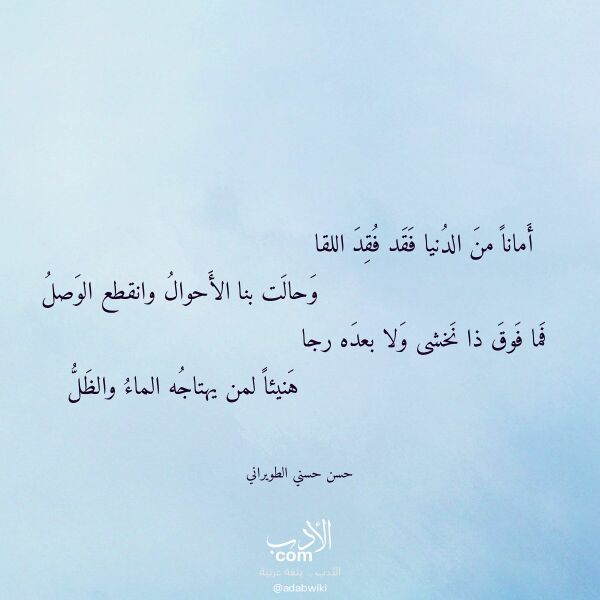 أَماناً منَ الدُنيا فَقَد فُقِدَ اللقا
وَحالَت بنا الأَحوالُ وانقطع الوَصلُ
فَما فَوقَ ذا نَخشى وَلا بعدَه رجا
هَنيئاً لمن يهتاجُه الماءُ والظَلُّ
حسن حسني الطويراني
الأدب
com
الأدب .. بلغة عربية
@adabwiki